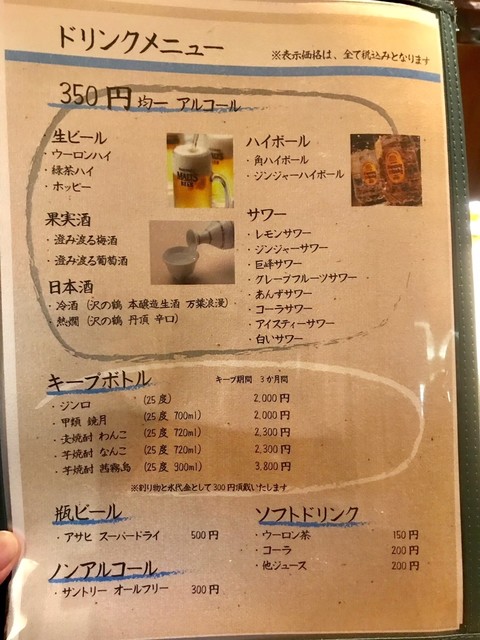 ドリンクメニュー
※表示価格は、全て税込みとなります
350円均一 アルコール
・生ビール
・ウーロンハイ
・緑茶ハイ
・ホッピー
果実酒
・澄み渡る梅酒
・澄み渡る葡萄酒
日本酒
・冷酒 (沢の鶴 本醸造生酒 万葉浪漫)
・熱燗 (沢の鶴 丹頂 辛口)
ハイボール
・角ハイボール
・ジンジャーハイボール
サワー
・レモンサワー
・ジンジャーサワー
・巨峰サワー
・グレープフルーツサワー
・あんずサワー
・コーラサワー
・アイスティーサワー
・白いサワー
キープボトル
キープ期間 3か月間
・ジンロ (25度) 2,000円
・甲類 鏡月 (25度 700ml) 2,000円
・麦焼酎 わんこ (25度 720ml) 2,300円
・芋焼酎 なんこ (25度 720ml) 2,300円
・芋焼酎 茜霧島 (25度 900ml) 3,800円
※割り物と氷代金として300円頂戴いたします
瓶ビール
・アサヒ スーパードライ 500円
ノンアルコール
・サントリー オールフリー 300円
ソフトドリンク
・ウーロン茶 150円
・コーラ 200円
・他ジュース 200円